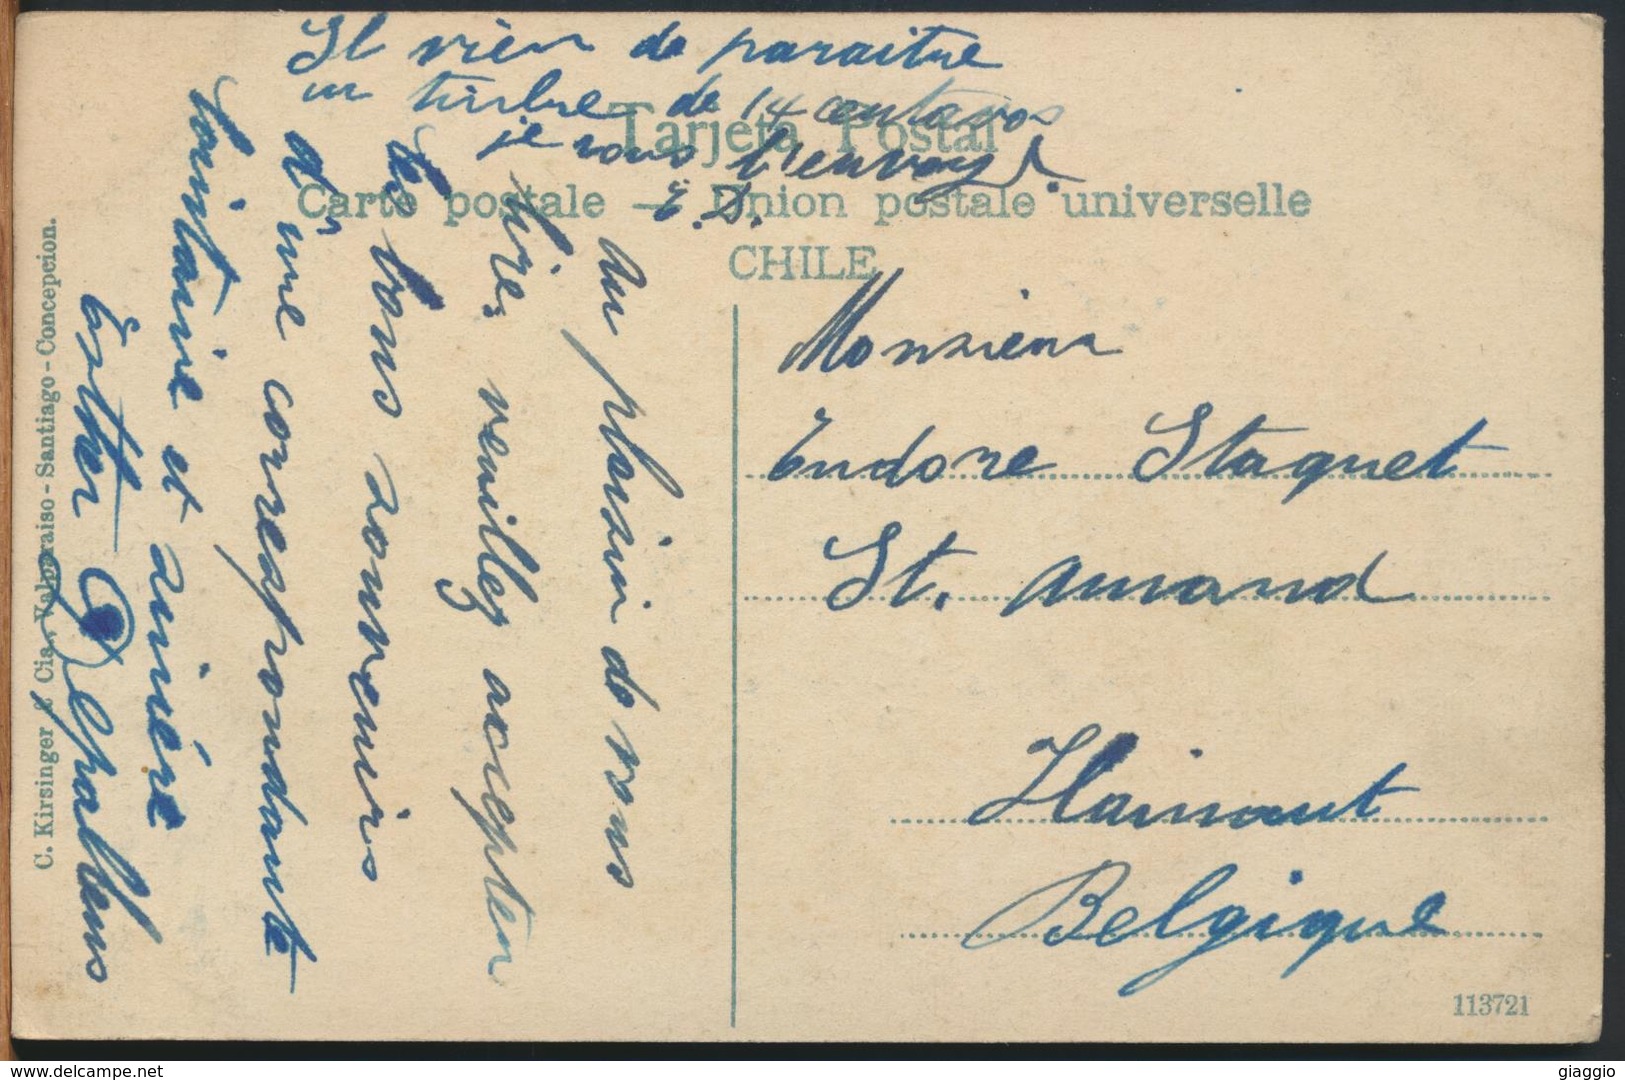 Il vien de paraitre
un timbre de 14 centavos
je vous l'envoye
E. D.
Tarjeta Postal
Carte postale — Union postale universelle
CHILE
Au plaisir de vous
lire, veuillez accepter
les bons souvenirs
d'une correspondante
lointaine et sincère
Esther Delpallens
Monsieur
Eudore Staquet
St. Amand
Hainaut
Belgique
C. Kirsinger & Cia. Valparaiso - Santiago - Concepcion.
113721
delcampe.net
giaggio